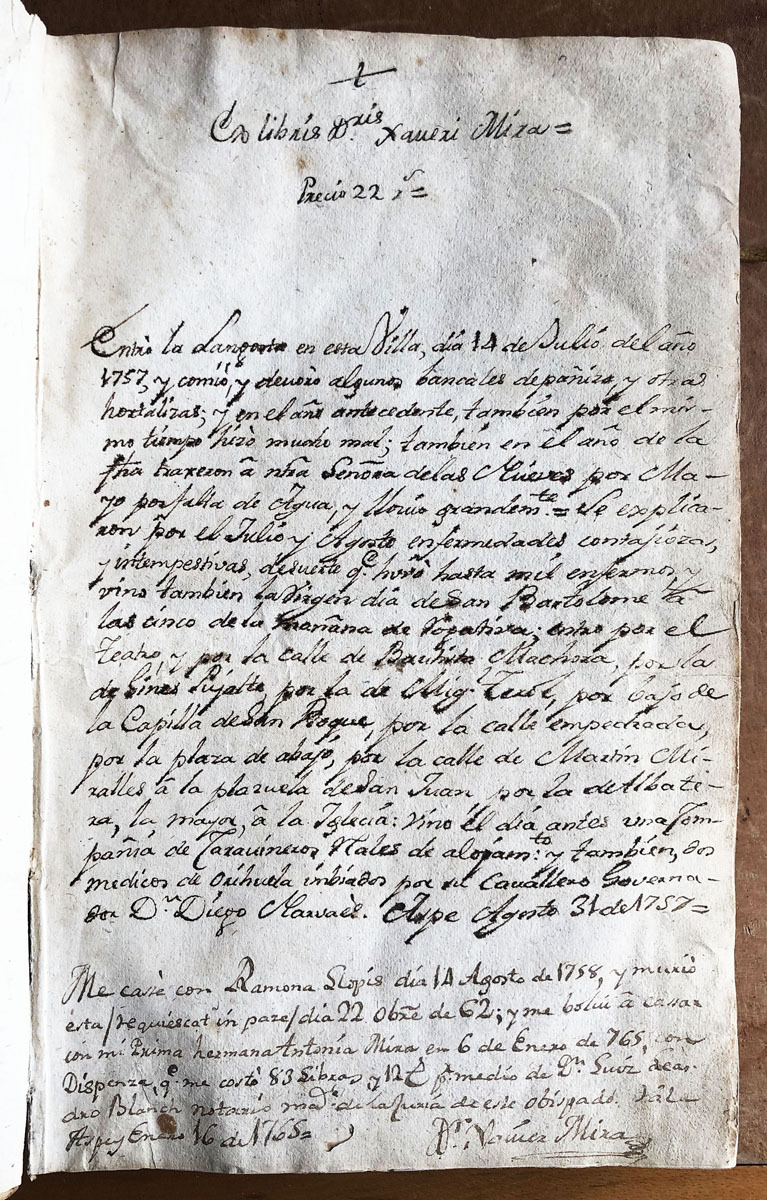 Ex libris D.ris Xaveri Mira=
Precio 22 r.s=
Entrò la Langosta en esta Villa, dia 14 de Julio del año
1757, y comiò, y devorò algunos bancales de panizo, y otras
hortalizas; y en el año antecedente, tambien por el mis-
mo tiempo hizo mucho mal; tambien en el año de la
fha traxeron â ntra Señora de las Nieves por Ma-
yo por falta de Agua, y lloviò grandem.te = Se explica-
ron por el Julio y Agosto enfermedades contagiozas,
y intempestivas, desuerte q.e huvo hasta mil enfermos y
vino tambien la Virgen dia de San Bartolome â
las cinco de la mañana de rogativa; entrò por el
Teatro y por la calle de Bautista Machora, por la
de Gines Pujalte, por la de Mig.l Terol, por bajo de
la Capilla de San Roque, por la calle empedrada,
por la plaza de abajo, por la calle de Martin Mi-
ralles â la plazuela de San Juan por la de Albate-
ra, la mayor, â la Iglecia: vino el dia antes una Com-
pañia de Caravineros Reales de alojam.to y tambien, dos
medicos de Orihuela inbiados por su Cavallero Governa-
dor D.n Diego Narvaès. Aspe Agosto 31 de 1757=
Me casè con Ramona Llopis dia 14 Agosto de 1758, y muriò
esta/requiescat in pace/dia 22 Obre de 62; y me bolvi â cassar
con mi Prima hermana Antonia Mira en 6 de Enero de 765, con
Dispenza, q.e me costò 83 Libras y 12 p.r medio de D.n Luis
Blanch notario de la Curia de este Obispado.
Aspe y Enero 16 de 1765=
D.r Xavier Mira